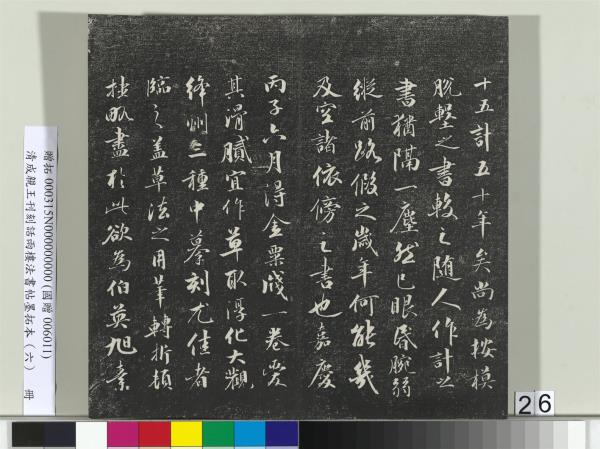 十五計五十年矣尚為按模
脫墼之書較之隨人作計之
書猶隔一塵然已眼昏腕弱
縱前路假之歲年何能幾
及空諸依傍之書也嘉慶
丙子六月得金粟牋一卷愛
其滑膩宜作草取淳化大觀
絳州三種中摹刻尤佳者
臨之蓋草法之用筆轉折頓
挫畝盡於此欲為伯英旭素
贈拓 000315N000000000 (國贈 006011)
清成親王刊刻詒雨樓法書帖墨拓本（六） 冊
26